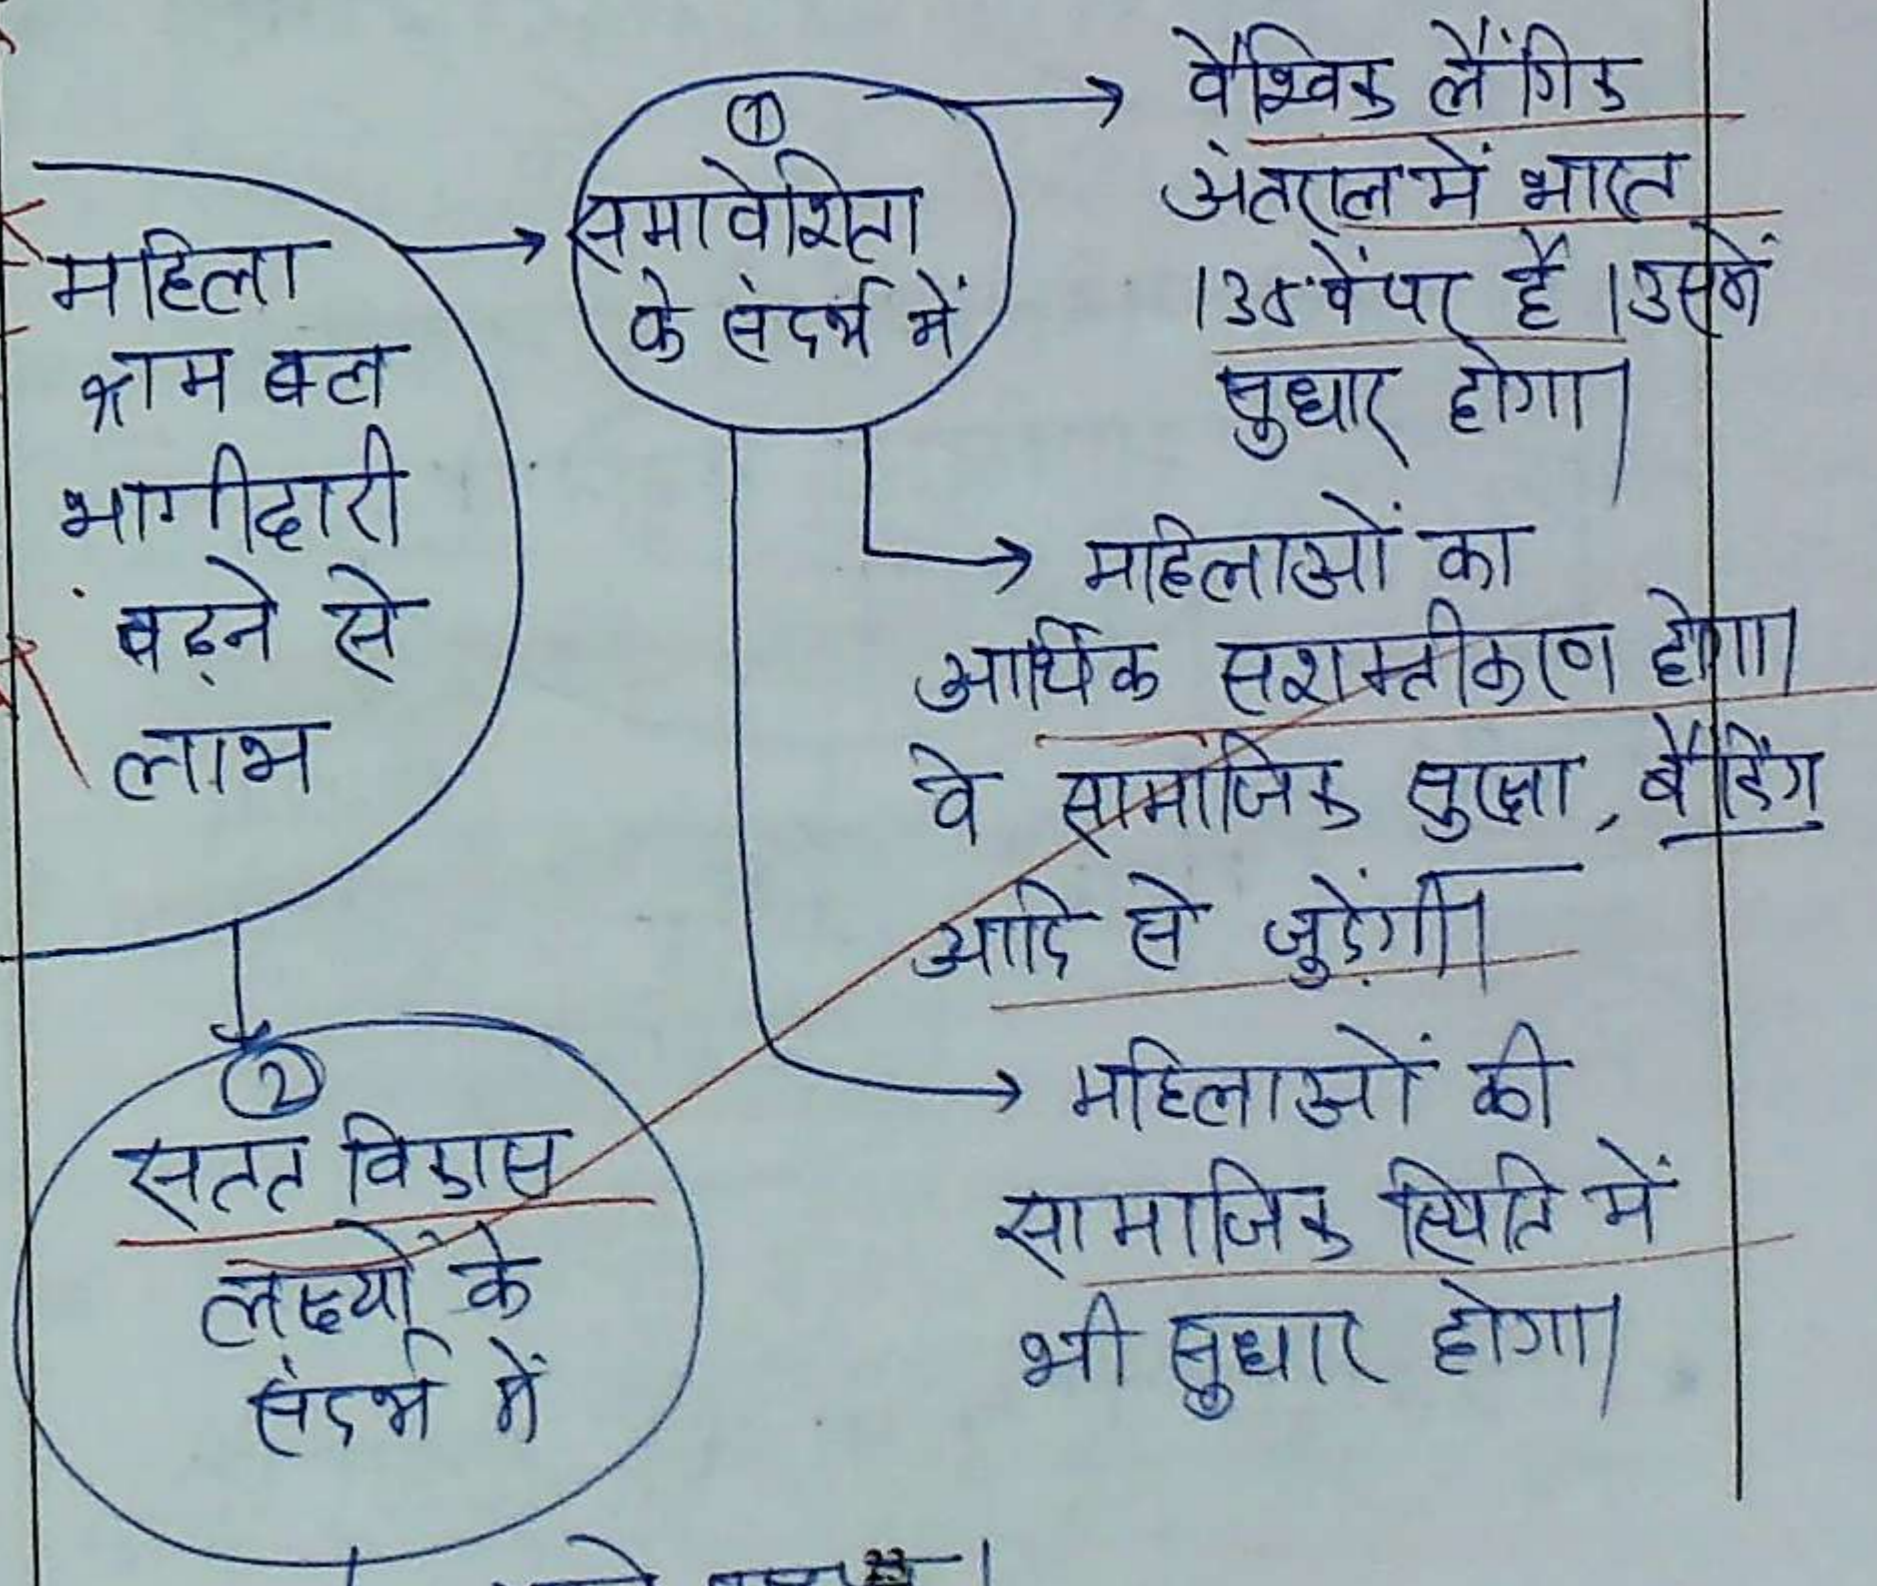 महिला
श्रम बल
भागीदारी
बढ़ने से
लाभ
①
समावेशिता
के संदर्भ में
वैश्विक लैंगिक
अंतराल में भारत
वें पर है। उसमें
सुधार होगा।
महिलाओं का
आर्थिक सशक्तीकरण होगा।
वे सामाजिक सुरक्षा, बैंकिंग
आदि से जुड़ेंगी।
महिलाओं की
सामाजिक स्थिति में
भी सुधार होगा।
②
सतत विकास
लक्ष्यों के
संदर्भ में